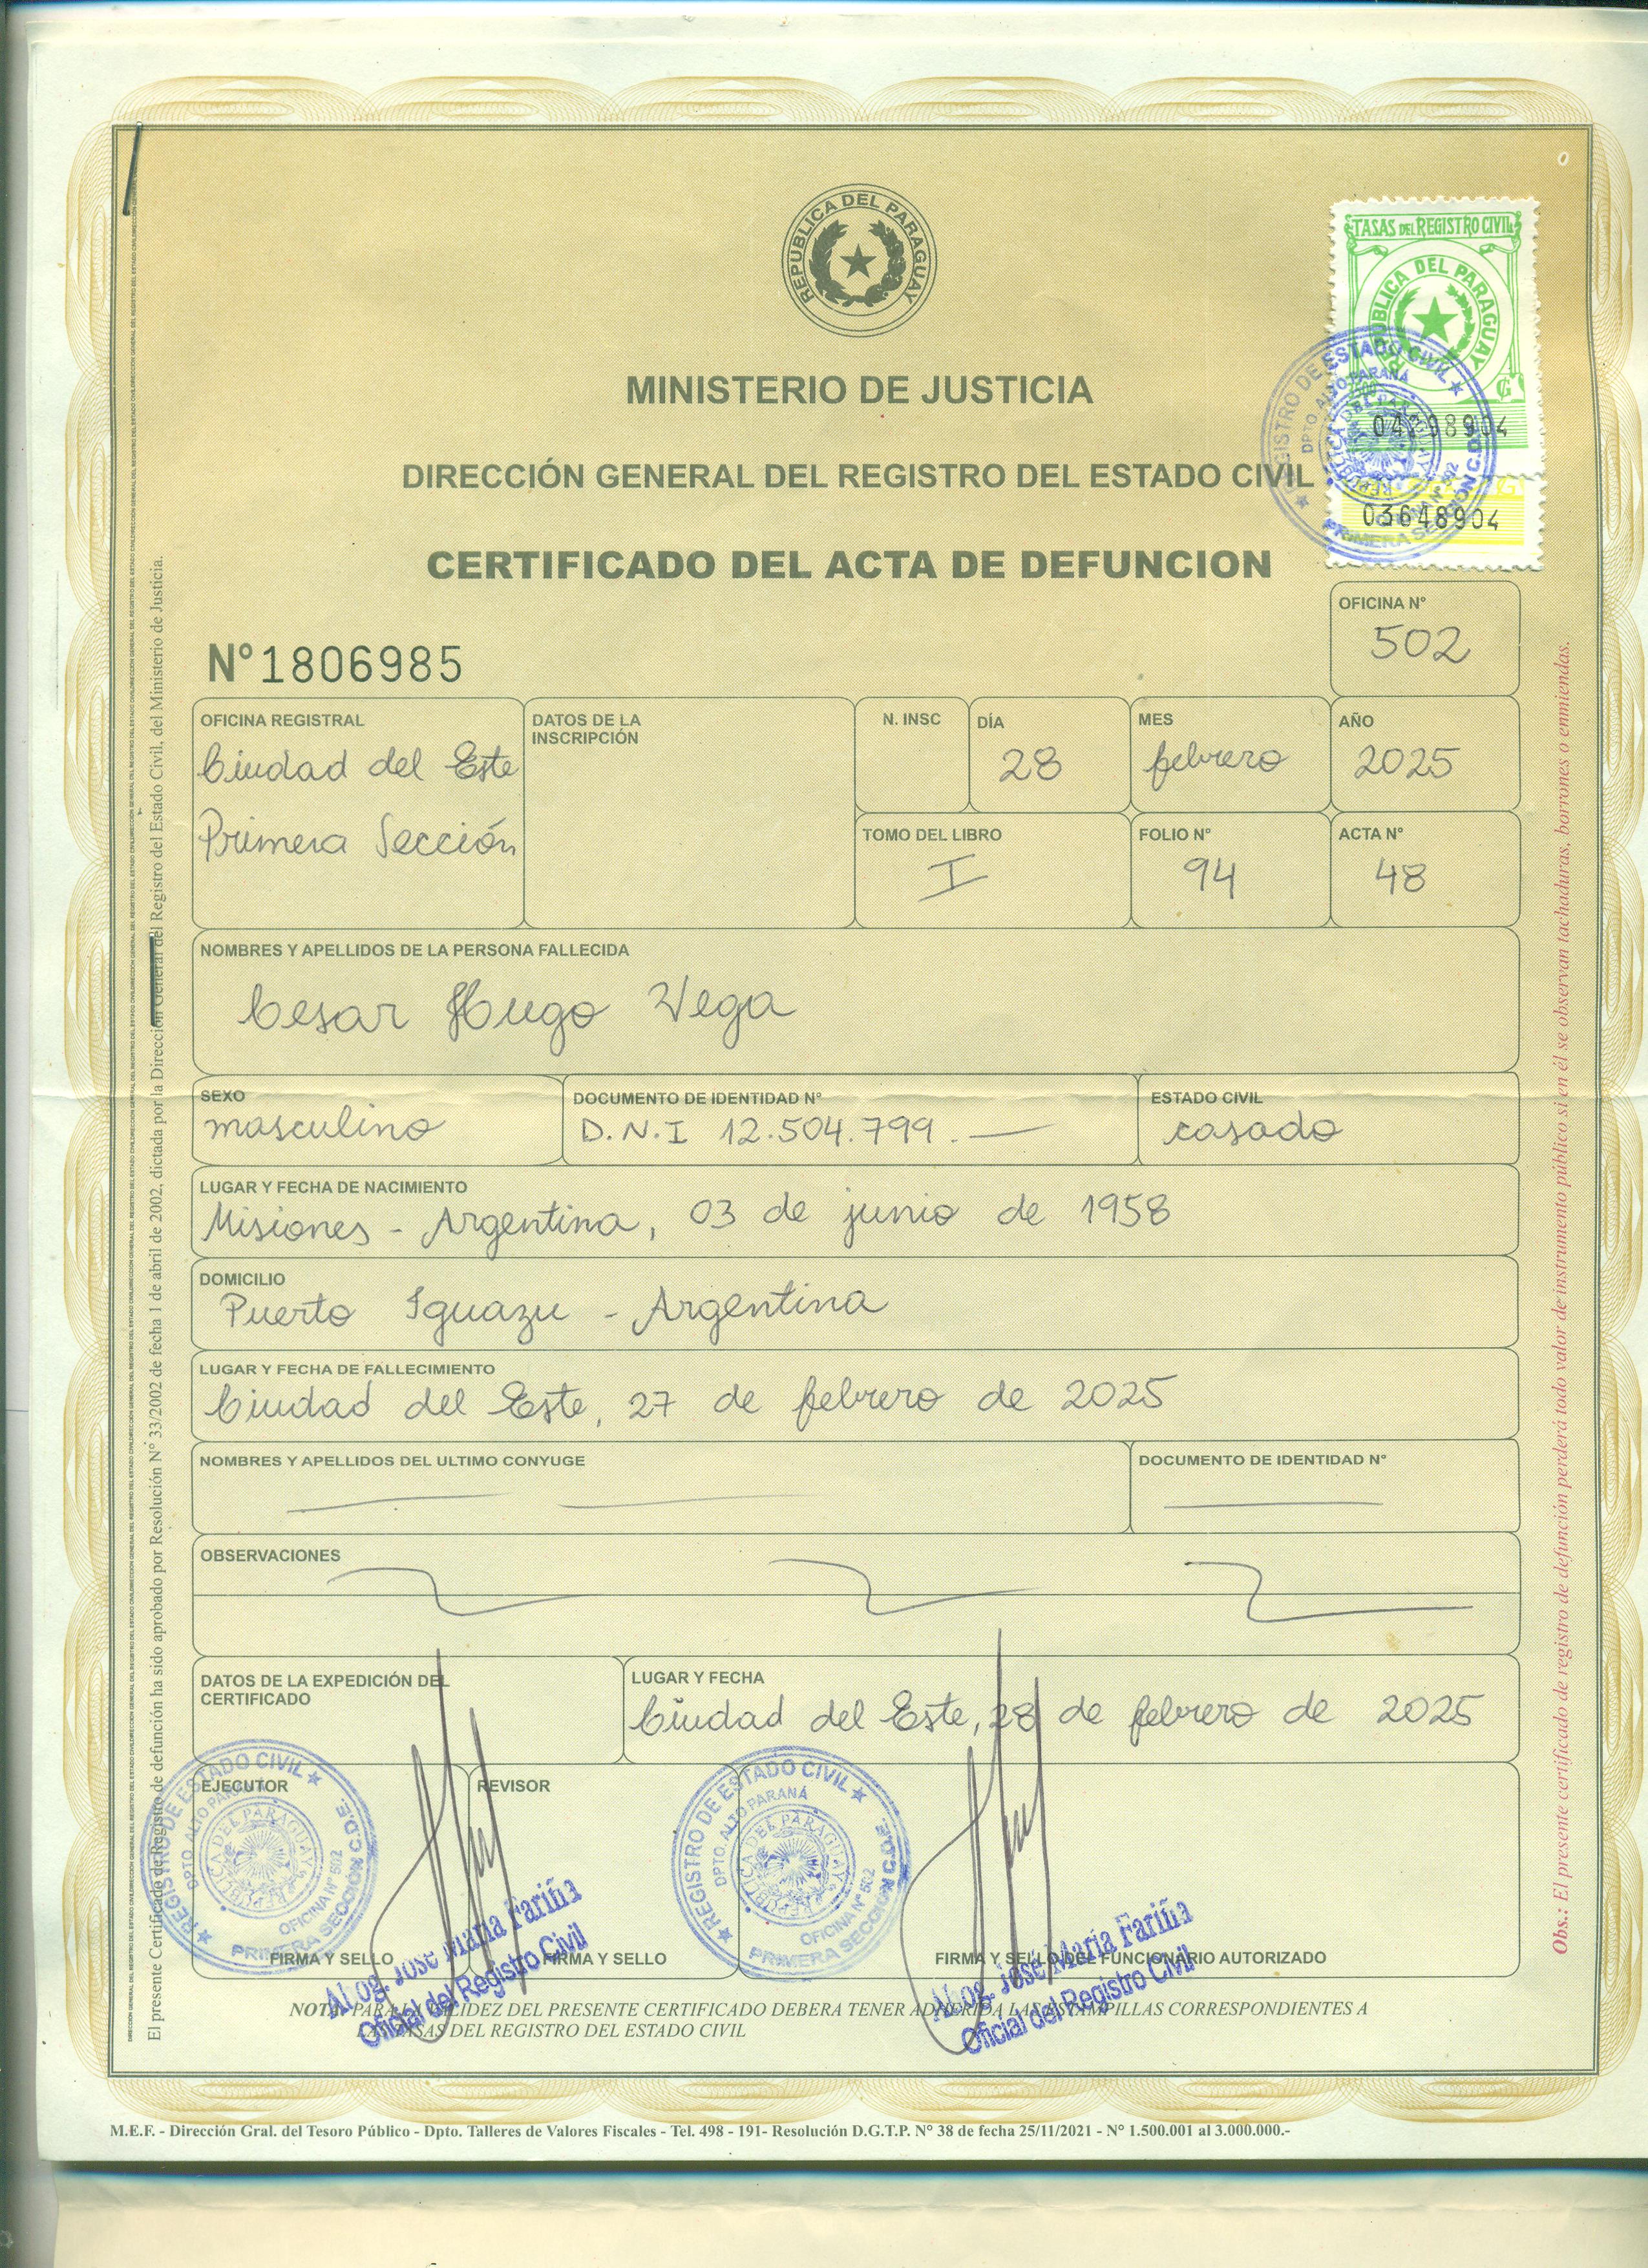 REPUBLICA DEL PARAGUAY
TASAS DEL REGISTRO CIVIL
REPUBLICA DEL PARAGUAY
MINISTERIO DE JUSTICIA
DIRECCIÓN GENERAL DEL REGISTRO DEL ESTADO CIVIL
REGISTRO DE ESTADO CIVIL
DPTO. ALTO PARANÁ
OFICINA N° 502
PRIMERA SECCION C.D.E.
03648904
CERTIFICADO DEL ACTA DE DEFUNCION
OFICINA N°
502
N° 1806985
OFICINA REGISTRAL
Ciudad del Este
Primera Sección
DATOS DE LA
INSCRIPCIÓN
N. INSC
DÍA
28
MES
febrero
AÑO
2025
TOMO DEL LIBRO
I
FOLIO N°
94
ACTA N°
48
NOMBRES Y APELLIDOS DE LA PERSONA FALLECIDA
Cesar Hugo Vega
SEXO
masculino
DOCUMENTO DE IDENTIDAD N°
D.N.I 12.504.799.
ESTADO CIVIL
casado
LUGAR Y FECHA DE NACIMIENTO
Misiones - Argentina, 03 de junio de 1958
DOMICILIO
Puerto Iguazu - Argentina
LUGAR Y FECHA DE FALLECIMIENTO
Ciudad del Este, 27 de febrero de 2025
NOMBRES Y APELLIDOS DEL ULTIMO CONYUGE
DOCUMENTO DE IDENTIDAD N°
OBSERVACIONES
DATOS DE LA EXPEDICIÓN DEL
CERTIFICADO
LUGAR Y FECHA
Ciudad del Este, 28 de febrero de 2025
EJECUTOR
REVISOR
REGISTRO DE ESTADO CIVIL
DPTO. ALTO PARANÁ
REPUBLICA DEL PARAGUAY
OFICINA N° 502
PRIMERA SECCION C.D.E.
REGISTRO DE ESTADO CIVIL
DPTO. ALTO PARANÁ
REPUBLICA DEL PARAGUAY
OFICINA N° 502
PRIMERA SECCION C.D.E.
FIRMA Y SELLO
FIRMA Y SELLO
FIRMA Y SELLO DEL FUNCIONARIO AUTORIZADO
Abog. José María Fariña
Oficial del Registro Civil
Abog. José María Fariña
Oficial del Registro Civil
NOTA: PARA LA VALIDEZ DEL PRESENTE CERTIFICADO DEBERA TENER ADHERIDA LAS ESTAMPILLAS CORRESPONDIENTES A
LAS TASAS DEL REGISTRO DEL ESTADO CIVIL
El presente Certificado de Registro de defunción ha sido aprobado por Resolución N° 33/2002 de fecha 1 de abril de 2002, dictada por la Dirección General del Registro del Estado Civil, del Ministerio de Justicia.
Obs.: El presente certificado de registro de defunción perderá todo valor de instrumento público si en él se observan tachaduras, borrones o enmiendas.
M.E.F. - Dirección Gral. del Tesoro Público - Dpto. Talleres de Valores Fiscales - Tel. 498 - 191- Resolución D.G.T.P. N° 38 de fecha 25/11/2021 - N° 1.500.001 al 3.000.000.-